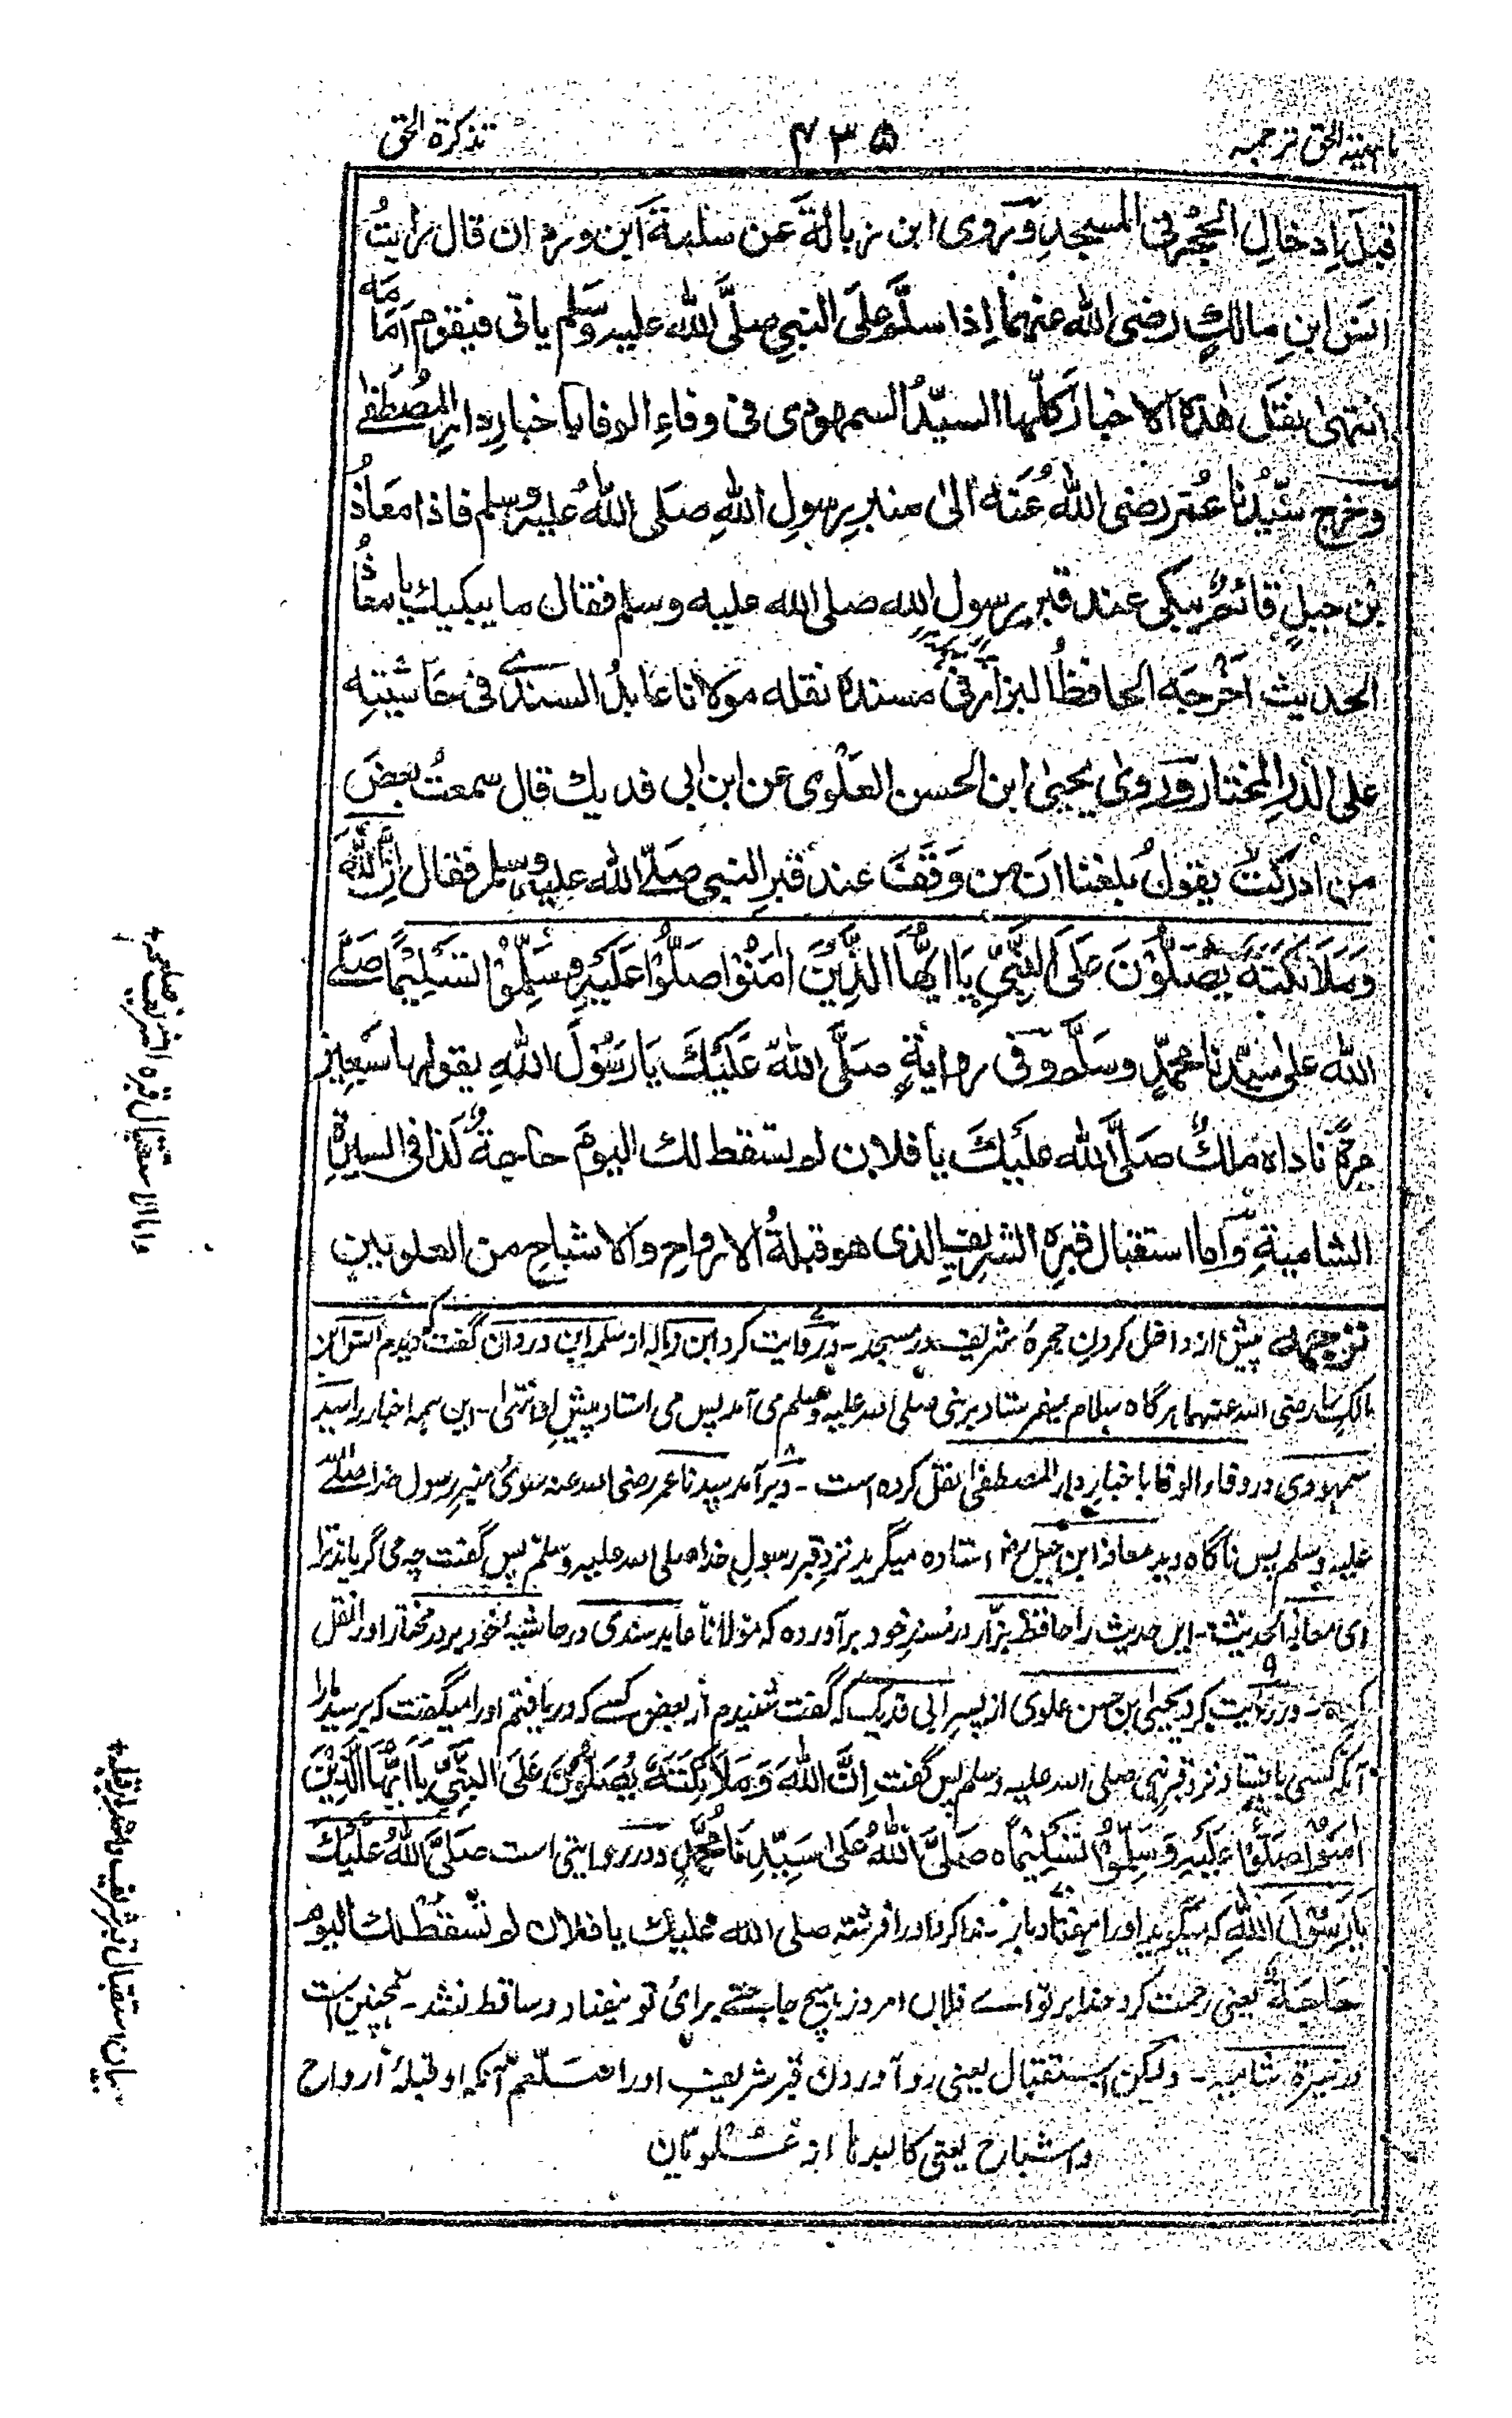 ناهیة الحق ترجمه
۴۳۵
تذکرة الحق
قبلَ اِدخالِ الحُجرِ فی المسجدِ ورَوی ابن زبالةَ عَن سلمةَ ابن وردان قال رایتُ
انسَ ابنِ مالكٍ رضی الله عنهما اِذا سلَّم علَی النبیِ صلَّی الله علیه وسَلم یاتی فیقوم اَمَامَه
انتهی نقَل هٰذه الاخبارَ کلّها السیّدُ السمهودی فی وفاءِ الوفا باخبارِ دارِ المُصطَفٰی
وخرج سیّدُنا عُمر رضی اللهُ عَنه الیٰ منبرِ رسولِ اللهِ صلَی اللهُ علیه وسلم فاذا معَاذُ
بن جبلٍ قائمٌ یبکی عند قبرِ رسول الله صلی الله علیه وسلم فقال ما یبکیك یا معَاذُ
الحدیث اَخرجَه الحافظُ البزار فی مسنده نقله مولانا عَابدُ السندی فی حَاشیتِه
علی الدُرِ المختار ورویٰ یحییٰ ابن الحسن العَلْوی عن ابن ابی فدیك قال سمعتُ بعضَ
من اَدرکتُ یقولُ بلغنا اَن من وَقَفَ عند قبرِ النبی صَلّے الله علیه وسلم فقال اِنَّ اللهَ
وَمَلَائِکَتَهٗ یُصَلُّوْنَ عَلَی النَّبِیِّ یَا اَیُّهَا الَّذِیْنَ اٰمَنُوْا صَلُّوْا عَلَیْهِ وَسَلِّمُوْا تَسْلِیْمًا صَلَّے
الله علیٰ سیّدنا محمّدٍ وسلَّم وفی روایةٍ صَلَّی اللهُ عَلَیْكَ یَا رَسُوْلَ اللهِ یقولها سَبعین
مرةً ناداه مَلكٌ صَلَّی الله علَیكَ یا فلان لم یسقط لك الیومَ حاجةٌ کذا فی السیرةِ
الشامیةِ وَاما استقبال قبرِه الشریفِ الذی هو قبلةُ الارواحِ والاشباحِ من العلویین
ترجمه پیش از داخل کردن حجرۀ شریف در مسجد۔ و روایت کرد ابن زباله از سلمه ابن وردان گفت دیدم انس ابن
مالک را رضی الله عنهما هرگاه سلام میفرستاد بر نبی صلی الله علیه وسلم می آمد پس می استاد پیشِ او انتهیٰ۔ این همه اخبار را سید
سمهودی در وفاء الوفا باخبارِ دار المصطفیٰ نقل کرده است۔ و برآمد سیدنا عمر رضی الله عنه سوئ منبر رسول خدا صلی الله
علیه وسلم پس ناگاه دید معاذ ابن جبل رض استاده میگرید نزدِ قبر رسولِ خدا صلی الله علیه وسلم پس گفت چه می گریاند ترا
ای معاذ الحدیث۔ این حدیث را حافظ بزّار در مسندِ خود برآورده که مولانا عابد سندی در حاشیۀ خود بر در مختار اورا نقل
کرده۔ و روایت کرد یحییٰ ابن حسن علوی از پسر ابی فدیک که گفت شنیدم از بعض کسے که دریافتم اورا میگفت که برسید ما را
آنکه کسی بایستاد نزد قبرِ نبی صلی الله علیه وسلم پس گفت اِنَّ اللهَ وَمَلَائِکَتَهٗ یُصَلُّوْنَ عَلَی النَّبِیِّ یَا اَیُّهَا الَّذِیْنَ
اٰمَنُوْا صَلُّوْا عَلَیْهِ وَسَلِّمُوْا تَسْلِیْمًا ه صَلَّی اللهُ عَلیٰ سَیِّدِنَا مُحَمَّدٍ و در روایتی است صَلَّی اللهُ عَلَیْكَ
یَا رَسُوْلَ اللهِ که میگوید اورا هفتاد بار۔ ندا کرد اورا فرشته صلی الله علیك یا فلان لم تسقط لك الیوم
حَاجَةٌ یعنی رحمت کرد خدا بر تو اے فلاں امروز هیچ حاجتے برائ تو نیفتاد و ساقط نشد۔ همچنین است
در سیرة شامیه۔ ولیکن استقبال یعنی رو آوردن قبر شریفِ اورا صلعم آنکه او قبلۀ ارواح
و اشباح یعنی کالبدها از علویان
واما استقبال قبره الشریف صلعم +
بیان استقبال قبر شریف